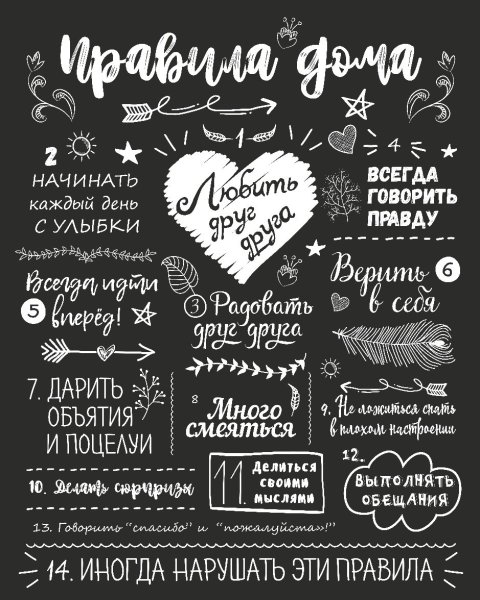 Правила дома
1
Любить
друг
друга
2
НАЧИНАТЬ
каждый день
С УЛЫБКИ
3 Радовать
друг друга
4
ВСЕГДА
ГОВОРИТЬ
ПРАВДУ
Всегда идти
5 вперёд!
Верить 6
в себя
7. ДАРИТЬ
ОБЪЯТИЯ
И ПОЦЕЛУИ
8
Много
смеяться
9. Не ложиться спать
в плохом настроении
10. Делать сюрпризы
11. Делиться
своими
мыслями
12.
ВЫПОЛНЯТЬ
ОБЕЩАНИЯ
13. Говорить "спасибо" и "пожалуйста»!"
14. ИНОГДА НАРУШАТЬ ЭТИ ПРАВИЛА